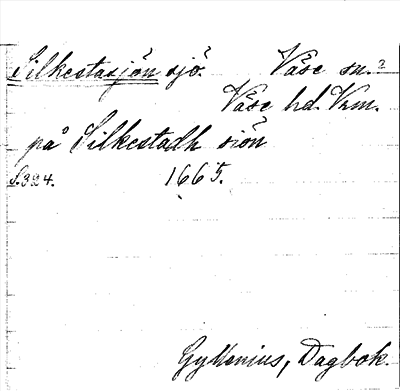 Silkestasjön sjö. Väse sn.?
Väse hd. Vrm.
på Silkestadh siön
S.324. 1665.
Gyllenius, Dagbok.